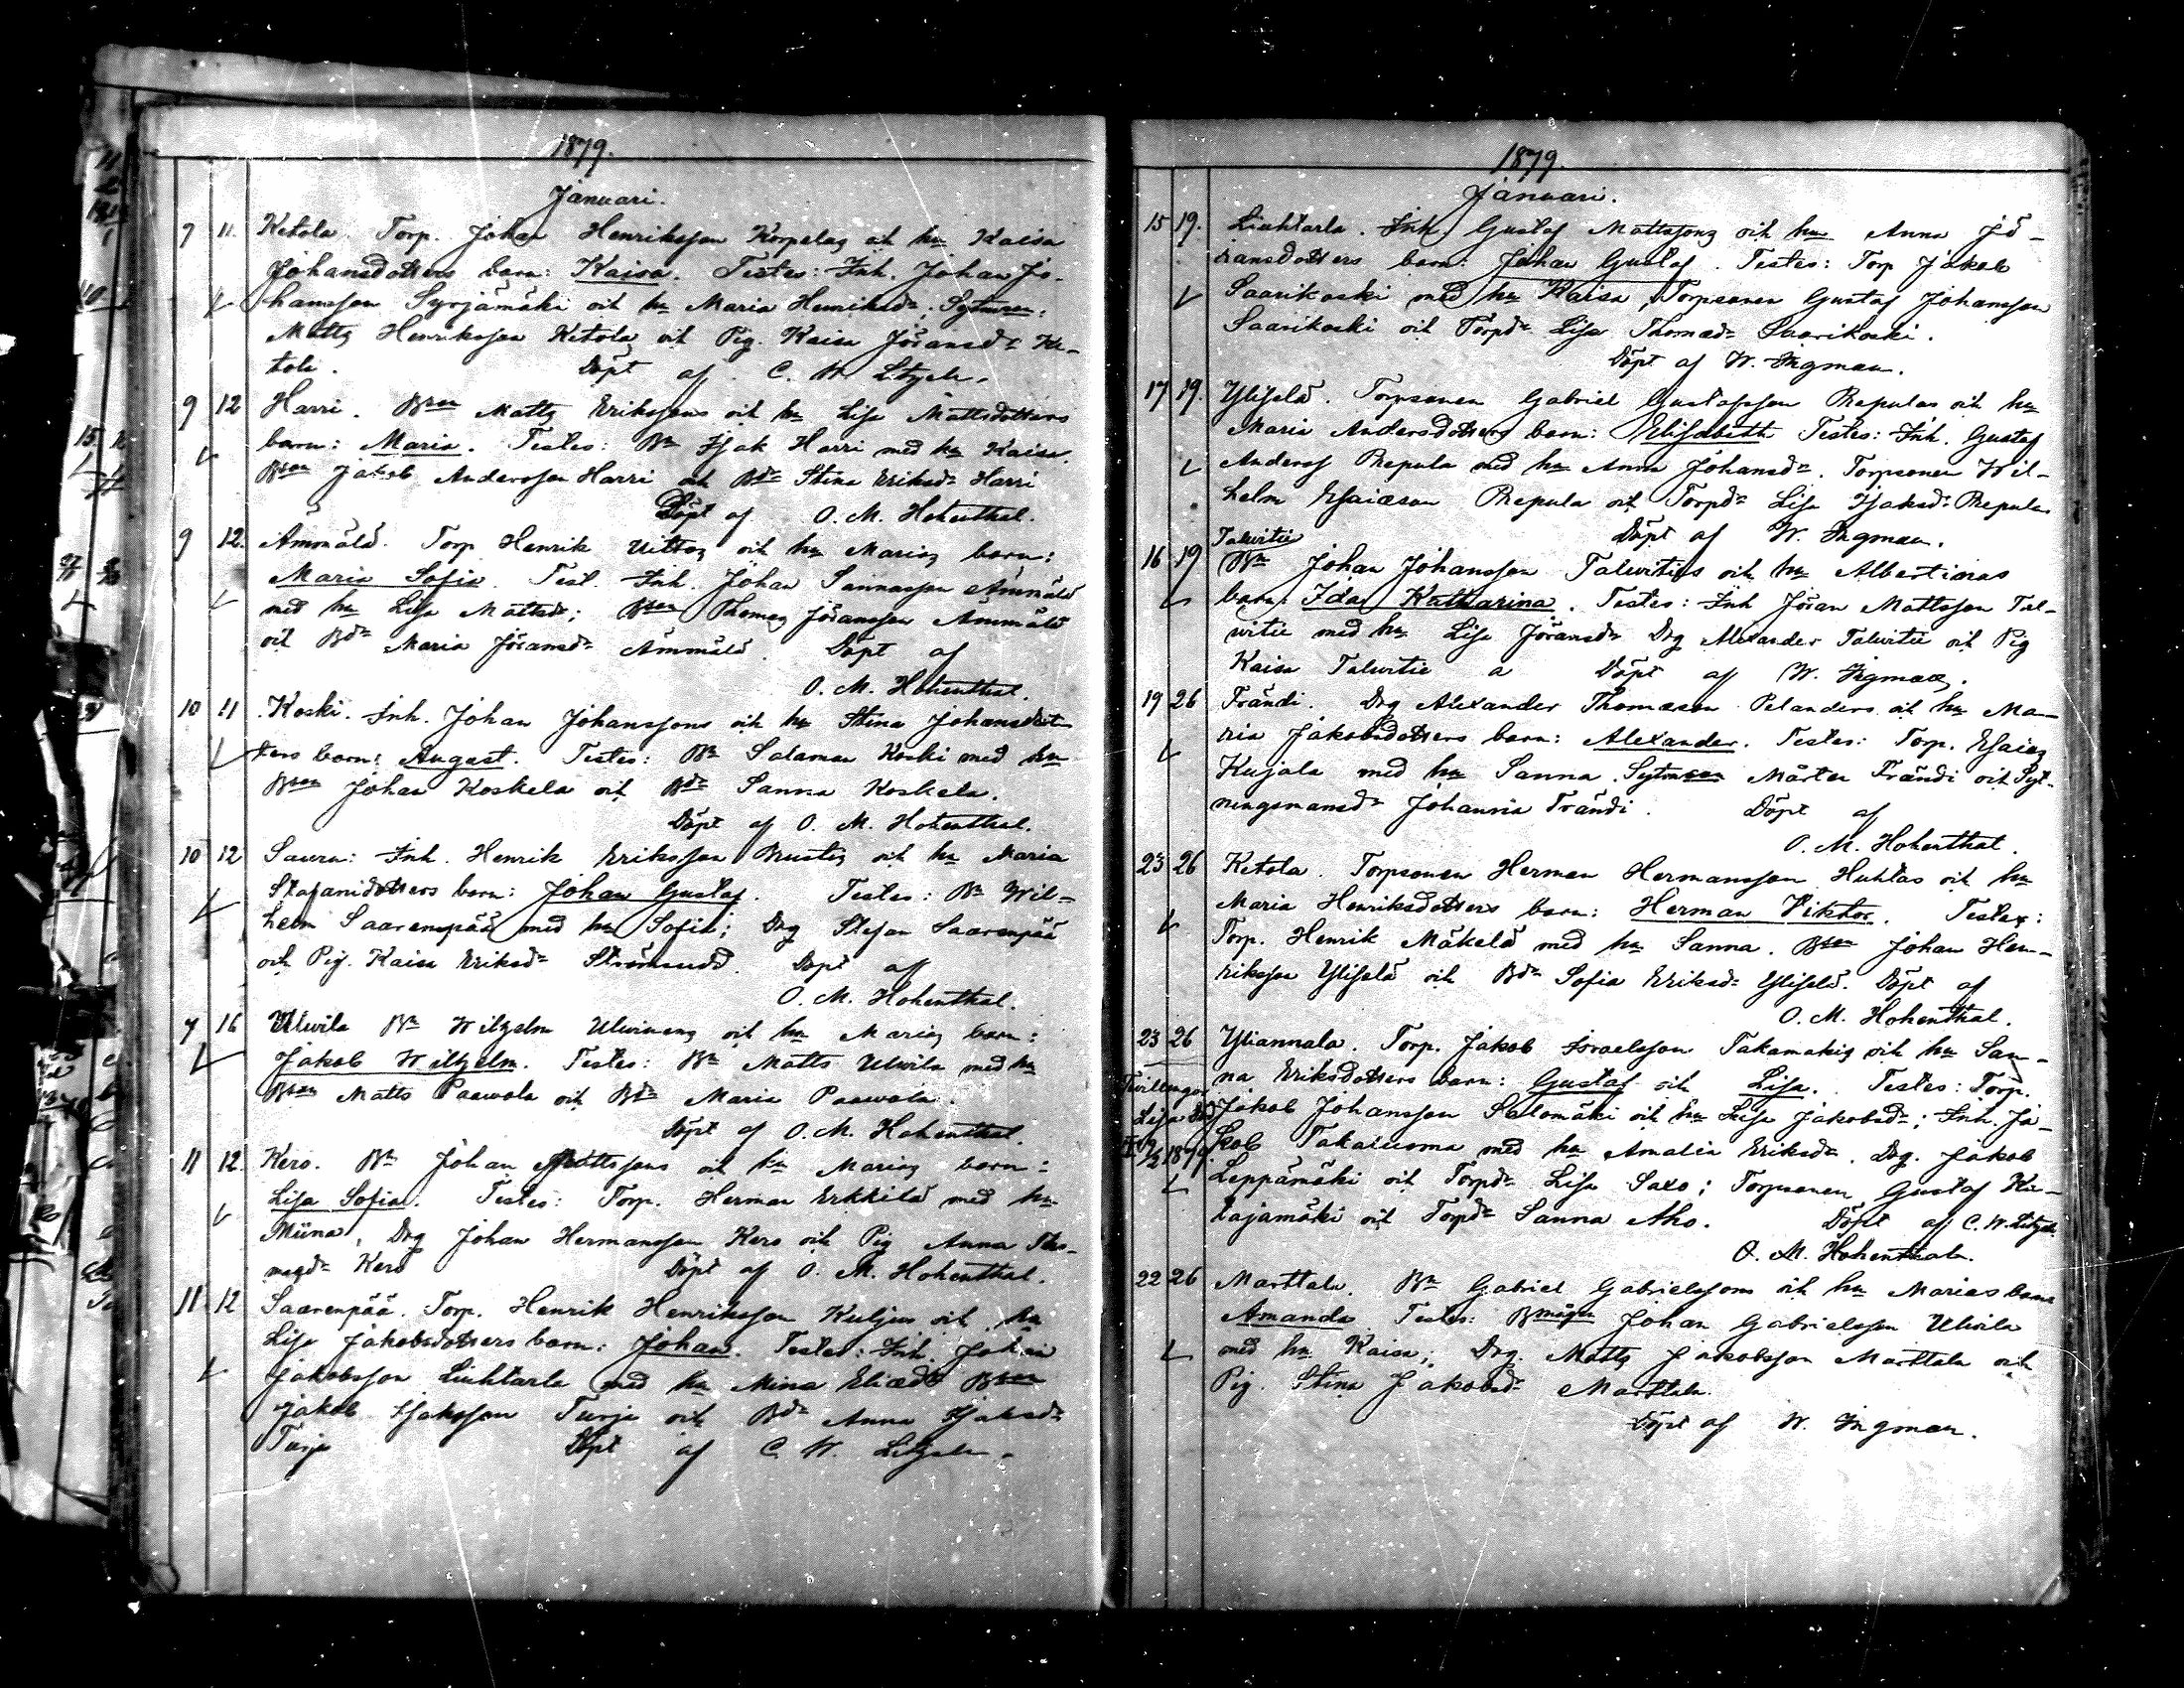 1879.
Januari.
9 11. Ketola. Torp. Johan Henriksson Korpelas och hu Kaisa
Johansdotters barn: Kaisa. Testes: Inh. Johan Jo-
hansson Syrjämäki och hu Maria Henriksdr;
Matts Henriksson Ketola och Pig. Kaisa Jöransdr Ke-
tola. Döpt af C. W. Litzen.
9 12 Harri. Bson Matts Erikssons och hu Lisa Mattsdotters
barn: Maria. Testes: Bn Isak Harri med hu Kaisa.
Bson Jakob Andersson Harri och Bdr Stina Eriksdr Harri
Döpt af O. M. Hohenthal.
9 12. Ämmälä. Torp Henrik och hu Marias barn:
Maria Sofia. Test. Inh. Johan Ämmälä
med hu Lisa Mattsdr; Bson Thomas Jöransson Ämmälä
och Bdr Maria Jöransdr Ämmälä. Döpt af
O. M. Hohenthal.
10 11 Koski. Inh. Johan Johanssons och hu Stina Johansdot-
ters barn: August. Testes: Bn Salamon Koski med hu
Bson Johan Koskela och Bdr Sanna Koskela.
Döpt af O. M. Hohenthal.
10 12 Inh. Henrik Eriksson och hu Maria
Stafanidotters barn: Johan Gustaf. Testes: Bn Wil-
helm Saarenpää med hu Sofia; Drg Stefan Saarenpää
och Pig. Kaisa Eriksdr Strömsudd. Döpt af
O. M. Hohenthal.
7 16 Ulwila Bn Wilhelm och hu Marias barn:
Jakob Wilhelm. Testes: Bn Matts Ulwila med hu
Bson Matts Paawola och Bdr Maria Paawola.
Döpt af O. M. Hohenthal.
11 12. Kero. Bn Johan Mattssons och hu Marias barn:
Lisa Sofia. Testes: Torp. Herman Erkkilä med hu
Miina, Drg Johan Hermansson Kero och Pig Anna Tho-
masdr Kero Döpt af O. M. Hohenthal.
11 12 Saarenpää. Torp. Henrik Henriksson Kuljus och hu
Lisa Jakobsdotters barn: Johan. Testes: Inh. Johan
Jakobsson Liuhtarla med hu Mina Bson
Jakob Isaksson Turja och Bdr Anna Isaksdr
Turja Döpt af C. W. Litzen.
1879.
Januari.
15 19. Liuhtarla. Inh. Gustaf Mattssons och hu Anna Jö-
ransdotters barn: Johan Gustaf. Testes: Torp Jakob
Saarikoski med hu Kaisa, Torpsonen Gustaf Johansson
Saarikoski och Torpdr Lisa Thomasdr Saarikoski.
Döpt af W. Ingman.
17 19. Yliselä. Torpsonen Gabriel Gustafsson Repulas och hu
Maria Andersdotters barn: Elisabeth Testes: Inh. Gustaf
Anderss Repula med hu Anna Johansdr. Torpsonen Wil-
helm Esaiæson Repula och Torpdr Lisa Isaksdr Repula
Döpt af W. Ingman.
Talwitie
16 19 Bn Johan Johansson Talwities och hu Albertinas
barn: Ida Katharina. Testes: Inh Jöran Mattsson Tal-
witie med hu Lisa Jöransdr Drg Alexander Talwitie och Pig
Kaisa Talwitie a Döpt af W. Ingman.
19 26 Frändi. Drg Alexander Thomæson Pelanders och hu Ma-
ria Jakobsdotters barn: Alexander. Testes: Torp. Esaias
Kujala med hu Sanna. Sytmson Mårten Frändi och Syt-
ningsmansdr Johanna Frändi. Döpt af
O. M. Hohenthal.
23 26 Ketola. Torpsonen Herman Hermansson Huhtas och hu
Maria Henriksdotters barn: Herman Viktor. Testes:
Torp. Henrik Mäkelä med hu Sanna. Bson Johan Hen-
riksson Yliselä och Bdr Sofia Eriksdr Yliselä. Döpt af
O. M. Hohenthal.
23 26 Yliannala. Torp. Jakob Israelsson Takamäkis och hu San-
na Eriksdotters barn: Gustaf och Lisa. Testes: Torp.
Jakob Johansson Salomäki och hu Lisa Jakobsdr; Inh. Ja-
kob med hu Amalia Eriksdr. Drg. Jakob
Leppämäki och Torpdr Lisa Saxo; Torpsonen Gustaf Ka-
tajamäki och Torpdr Sanna Aho. Döpt af C. W. Litzen.
O. M. Hohenthal.
Tvillingar
Lisa
1879.
22 26 Marttala. Bn Gabriel Gabrielssons och hu Marias barn
Amanda Testes: Bmågen Johan Gabrielsson Ulwila
med hu Kaisa; Drg. Matts Jakobsson Marttala och
Pig. Stina Jakobsdr Marttala.
Döpt af W. Ingman.